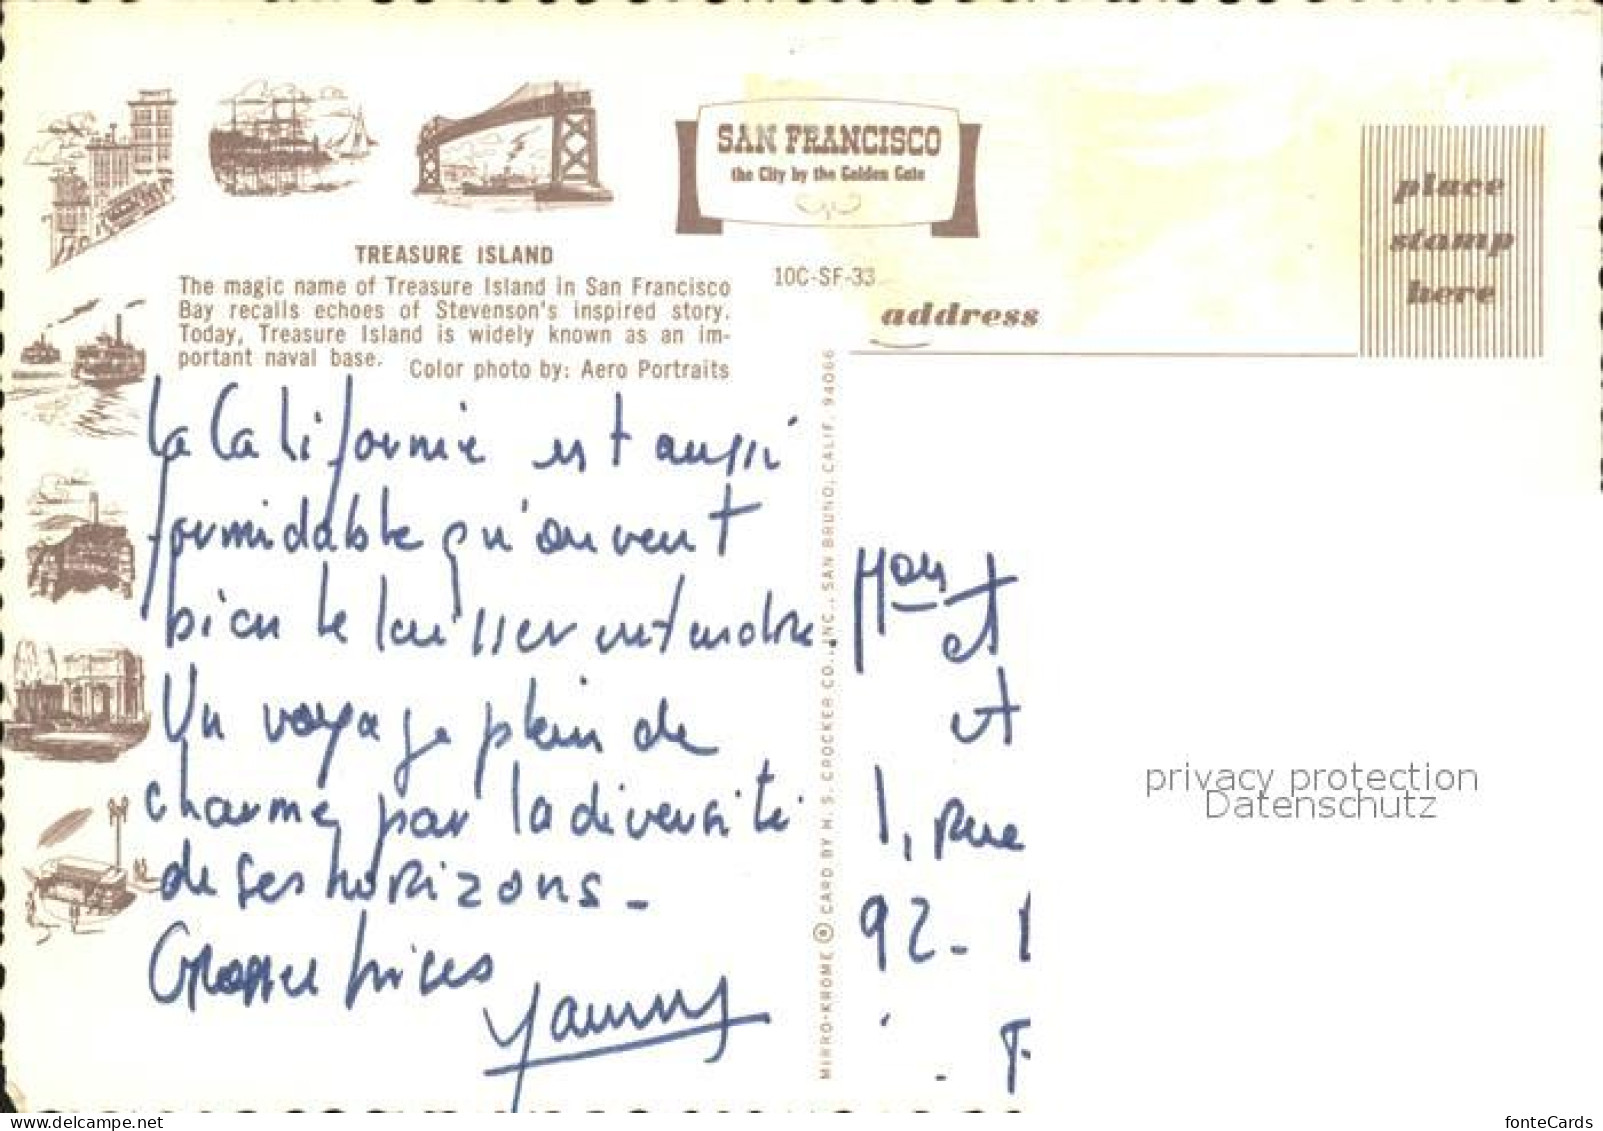 SAN FRANCISCO
the City by the Golden Gate
place
stamp
here
TREASURE ISLAND
The magic name of Treasure Island in San Francisco
Bay recalls echoes of Stevenson's inspired story.
Today, Treasure Island is widely known as an im-
portant naval base.
Color photo by: Aero Portraits
10C-SF-33
address
La Californie est aussi
formidable qu'on veut
bien le laisser entendre.
Un voyage plein de
charme, par la diversité
de ses horizons -
Grosses bises
Yanny
MIRRO-KROME ® CARD BY H. S. CROCKER CO., INC., SAN BRUNO, CALIF. 94066
et
et
1, rue
92 -
privacy protection
Datenschutz
delcampe.net
fonteCards